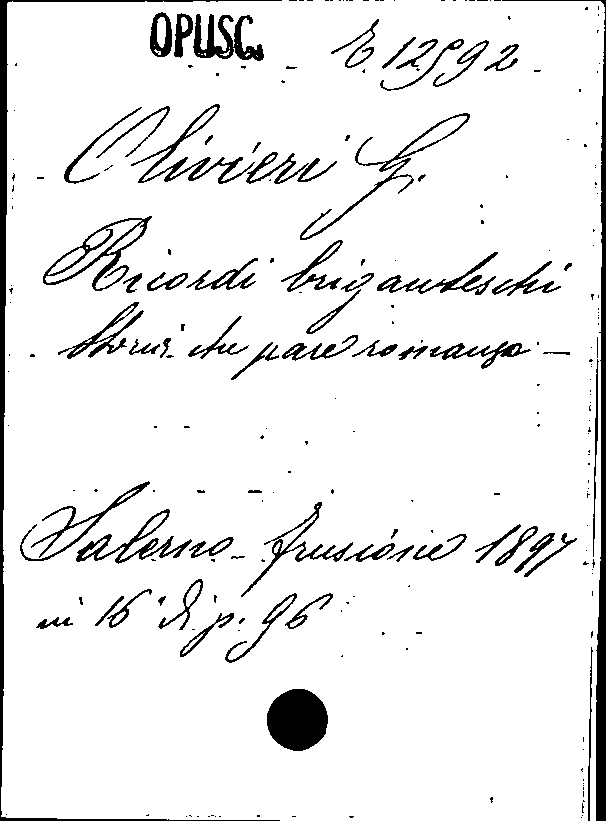 OPUSC. E 12592
Olivieri G.
Ricordi briganteschi
Storia che pare romanzo —
Salerno - Frusione 1897
in 16° di p. 96